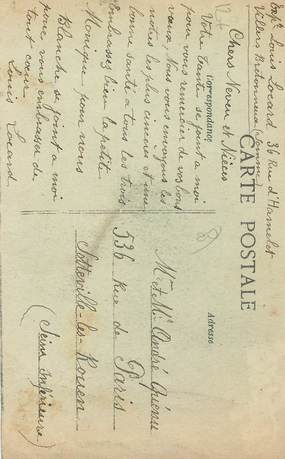 Expr Louis Locard 36 Rue d'Hamelet
Villers Bretonneux (Somme)
CARTE POSTALE
Correspondance
Adresse
Chers Neveu et Nièces
Votre tante se joint a moi
pour vous remercier de vos bons
vœux, Nous vous envoyons les
notres les plus sincères et une
bonne santé a tous les trois
Embrassez bien la petite
Monique pour nous
Blanche se joint a moi
pour vous embrasser de
tout cœur
Louis Locard
Mr et Me André Quénu
536 Rue de Paris
Sotteville-les-Rouen
(Seine Inférieure)